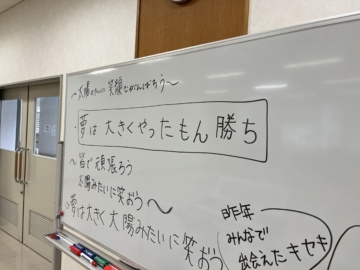 〜太陽みたいに笑顔でがんばろう〜
夢は大きくやったもん勝ち
〜皆で頑張ろう
太陽みたいに笑おう〜
・夢は大きく太陽みたいに笑おう
昨年
みんなで
出会えたキセキ